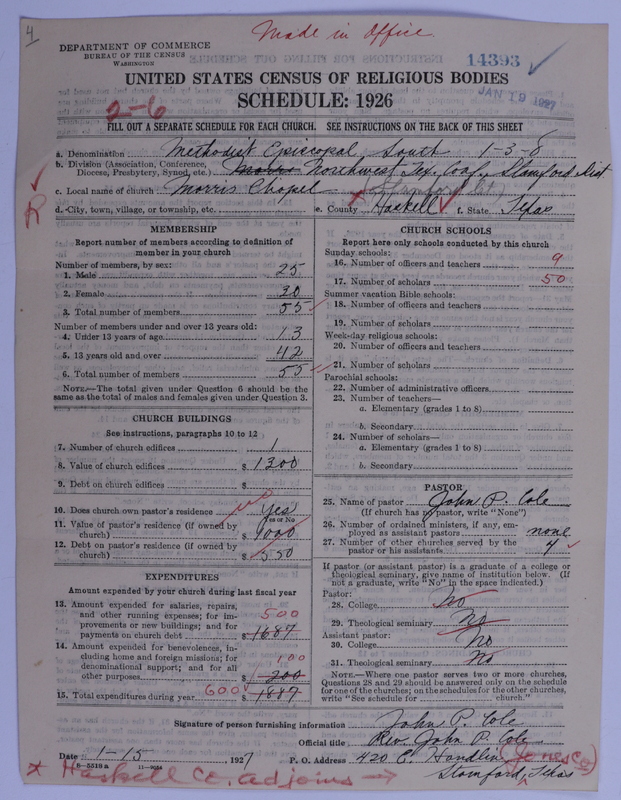 4
Made in Office
DEPARTMENT OF COMMERCE
BUREAU OF THE CENSUS
WASHINGTON
14393
JAN 19 1927
UNITED STATES CENSUS OF RELIGIOUS BODIES
SCHEDULE: 1926
2-6
FILL OUT A SEPARATE SCHEDULE FOR EACH CHURCH. SEE INSTRUCTIONS ON THE BACK OF THIS SHEET
a. Denomination Methodist Episcopal, South 1-3-8
b. Division (Association, Conference, Diocese, Presbytery, Synod, etc.) Northwest Tex. Conf., Stamford Dist
c. Local name of church Morris Chapel
R
d. City, town, village, or township, etc. e. County Haskell f. State Texas
MEMBERSHIP
Report number of members according to definition of
member in your church
Number of members, by sex:
1. Male 25
2. Female 30
3. Total number of members 55
Number of members under and over 13 years old:
4. Under 13 years of age 13
5. 13 years old and over 42
6. Total number of members 55
NOTE.—The total given under Question 6 should be the
same as the total of males and females given under Question 3.
CHURCH BUILDINGS
See instructions, paragraphs 10 to 12
7. Number of church edifices 1
8. Value of church edifices $ 1300
9. Debt on church edifices $
10. Does church own pastor's residence no Yes
Yes or No
11. Value of pastor's residence (if owned by
church) $ 1000
12. Debt on pastor's residence (if owned by
church) $ 550
EXPENDITURES
Amount expended by your church during last fiscal year
13. Amount expended for salaries, repairs,
and other running expenses; for im-
provements or new buildings; and for
payments on church debt 500 $ 1687
14. Amount expended for benevolences, in-
cluding home and foreign missions; for
denominational support; and for all
other purposes 100 $ 200
15. Total expenditures during year 600 $ 1887
CHURCH SCHOOLS
Report here only schools conducted by this church
Sunday schools:
16. Number of officers and teachers 9
17. Number of scholars 50
Summer vacation Bible schools:
18. Number of officers and teachers
19. Number of scholars
Week-day religious schools:
20. Number of officers and teachers
21. Number of scholars
Parochial schools:
22. Number of administrative officers
23. Number of teachers—
a. Elementary (grades 1 to 8)
b. Secondary
24. Number of scholars—
a. Elementary (grades 1 to 8)
b. Secondary
PASTOR
25. Name of pastor John P. Cole
(If church has no pastor, write "None")
26. Number of ordained ministers, if any, em-
ployed as assistant pastors none
27. Number of other churches served by the
pastor or his assistants 4
If pastor (or assistant pastor) is a graduate of a college or
theological seminary, give name of institution below. (If
not a graduate, write "No" in the space indicated.)
Pastor:
28. College No
29. Theological seminary No
Assistant pastor:
30. College No
31. Theological seminary No
NOTE.—Where one pastor serves two or more churches,
Questions 28 and 29 should be answered only on the schedule
for one of the churches; on the schedules for the other churches,
write "See schedule for church."
Signature of person furnishing information John P. Cole
Official title Rev. John P. Cole
Date 1-15 1927 P. O. Address 420 E. Handlin (Jones Co)
8-5518 a
Stamford, Texas
* Haskell Co. adjoins →